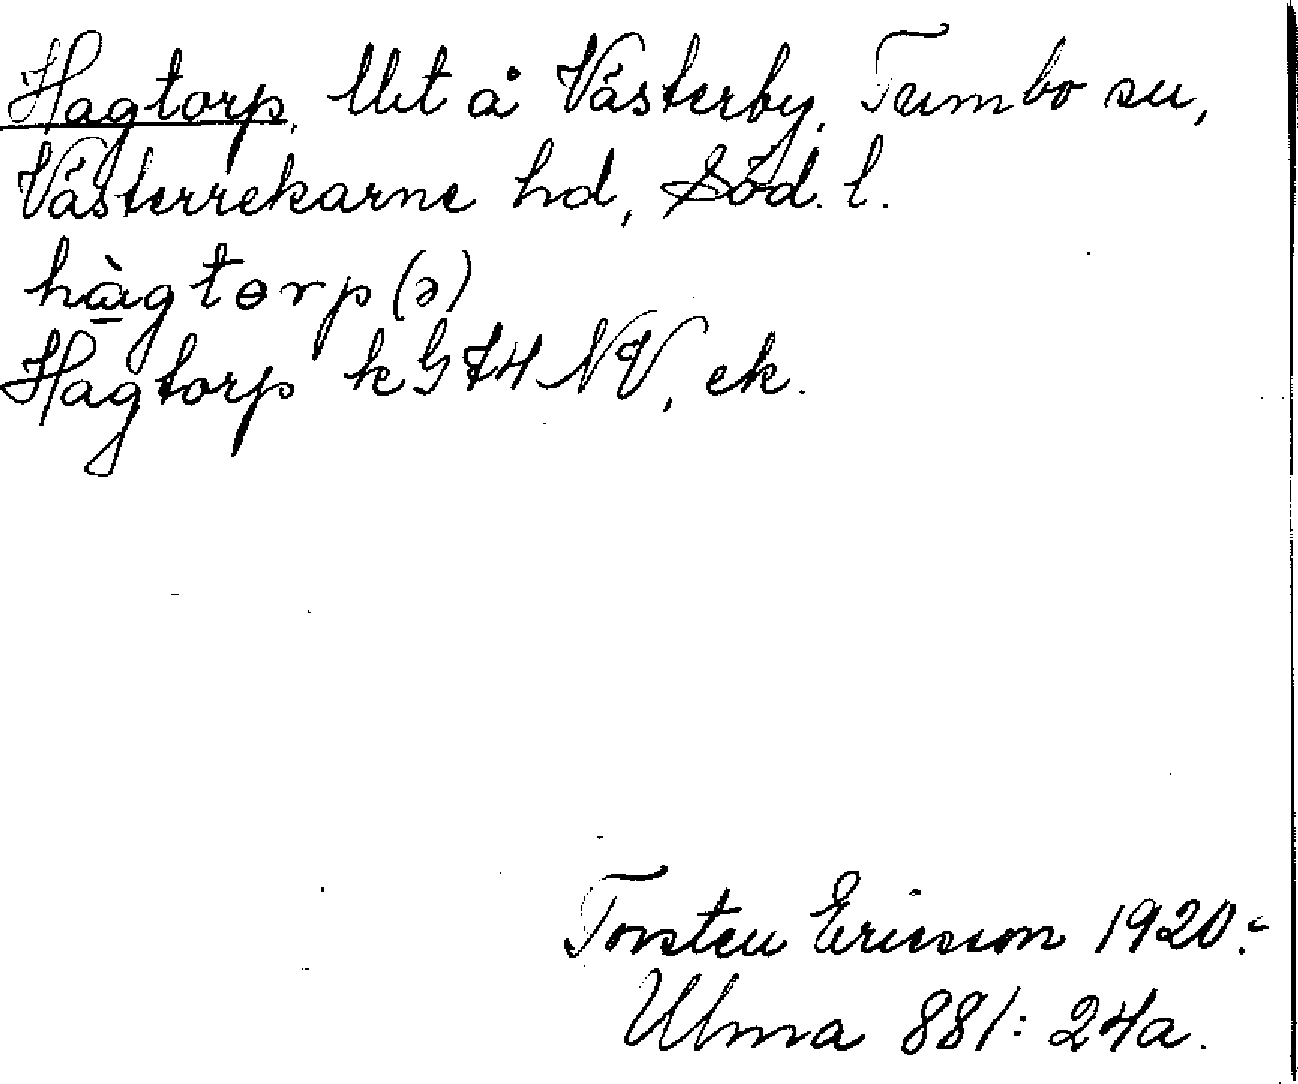 Hagtorp, Utå Västerby, Tumbo sn,
Västerrekarne hd, Söd. l.
hàgtɵrp(ə)
Hagtorp k G 74 NV, ek.
Torsten Ericsson 1920:
Ulma 881: 24a.